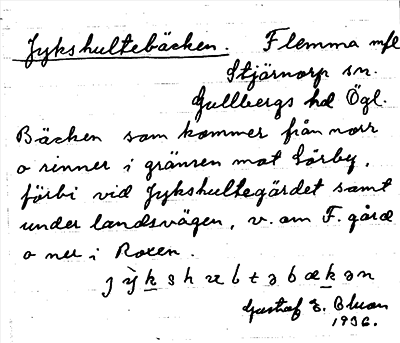 Jykshultebäcken. Flemma mfl
Stjärnorp sn.
Gullbergs hd Ögl.
Bäcken som kommer från norr
o rinner i gränsen mot Sörby,
förbi vid Jykshultegärdet samt
under landsvägen, v. om F. gård
o ner i Roxen.
Gustaf E. Bluan
1936.